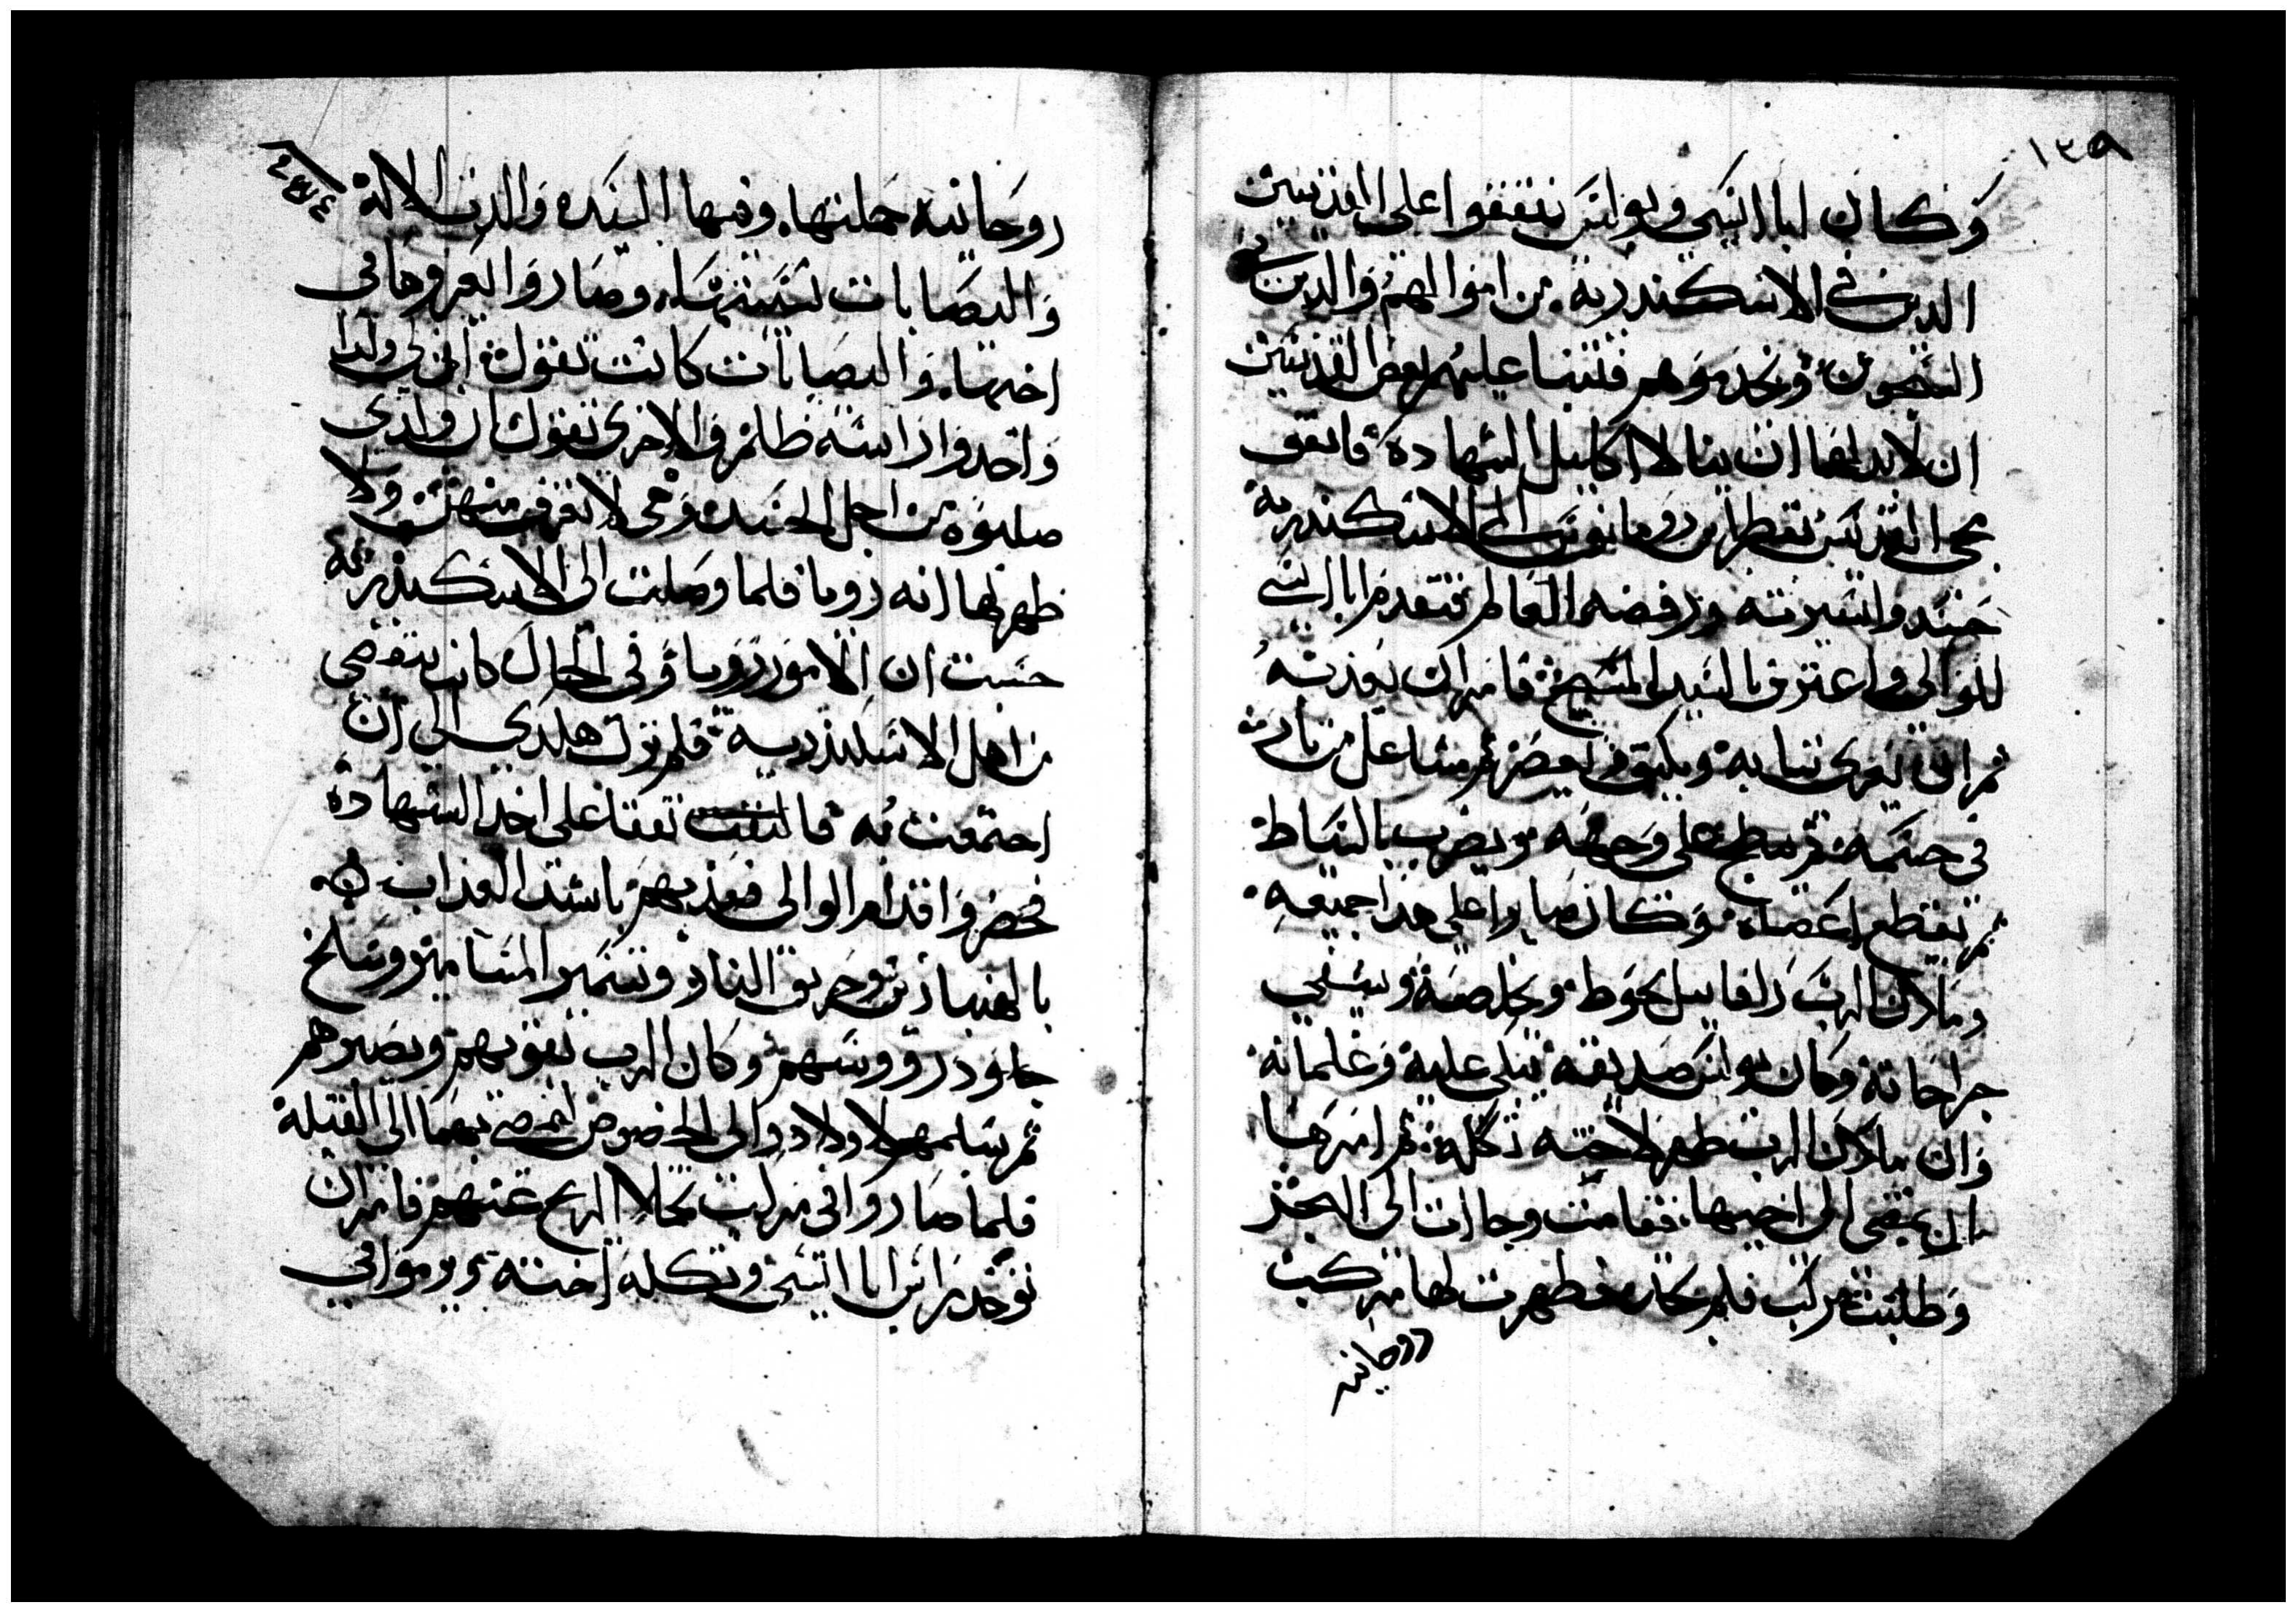 ١٣٩
وكان ابا ايسي وبولس يتفقوا على القديسين
الدين في الاسكندرية من اموالهم والدين في
السجون ويخدموهم فتنبا عليهم بعض القديسين
ان لابد لهما ان ينالا اكليل الشهادة فاتفق
مجى القديس بقطر ابن رومانوس الى الاسكندرية
حسد وا لسيرته ورفضه العالم فتقدم ابا ايسي
للوالي واعترف بالسيد المسيح فامر ان يعذبه
ثم ان يعرى ثيابه ويلبق في يعصر ثم مشاعل من نار
في جسمه ثم يبطح على وجهه ويضرب بالسياط
ثم تقطع اعضاه وكان صابرا على هذا جميعه
وملاك الرب رافاييل يحوط ويخلصه ويشفي
جراحاته وكان بولس صديقه يبكي عليه وغلمانه
وان ملاك الرب ظهر لاخته تكله ثم امرها
ان تمضي الى اخيها فقامت وجاات الى البحر
وطلبت مركب فلم تجد فظهرت لها مركب
روحانيه
روحانيه حملتها وفيها السيده والدت الالة
واليصابات نسيبتها وصاروا يعزوها في
اخيها واليصابات كانت تقول اني لي ولدا
واحد واداسه ظالم والاخرى تقول ان ولدي
صلبوه من اجل الحسد وهي لا تعرف منهن ولا
ظهر لها انه رويا فلما وصلت الى الاسكندرية
حسبت ان الامور رويا وفي الحال كانت تتقصى
من اهل الاسكندرية فلم تزل هكدي الى ان
اجتمعت به فالتفت تفقا على اخد الشهادة
فحضروا قدام الوالي فعذبهم باشد العذاب
بالهنبازين وحريق النار وتسمير المسامير وسلخ
جلود رووسهم وكان الرب يقويهم ويصبرهم
ثم سلمهم لاولادوالى الخصوص ليمضي بهما الى القتله
فلما صاروا في مركب تخلا الريح عنهم فامر ان
توخد راس ابا ايسي وتكله اخته ويرموا في